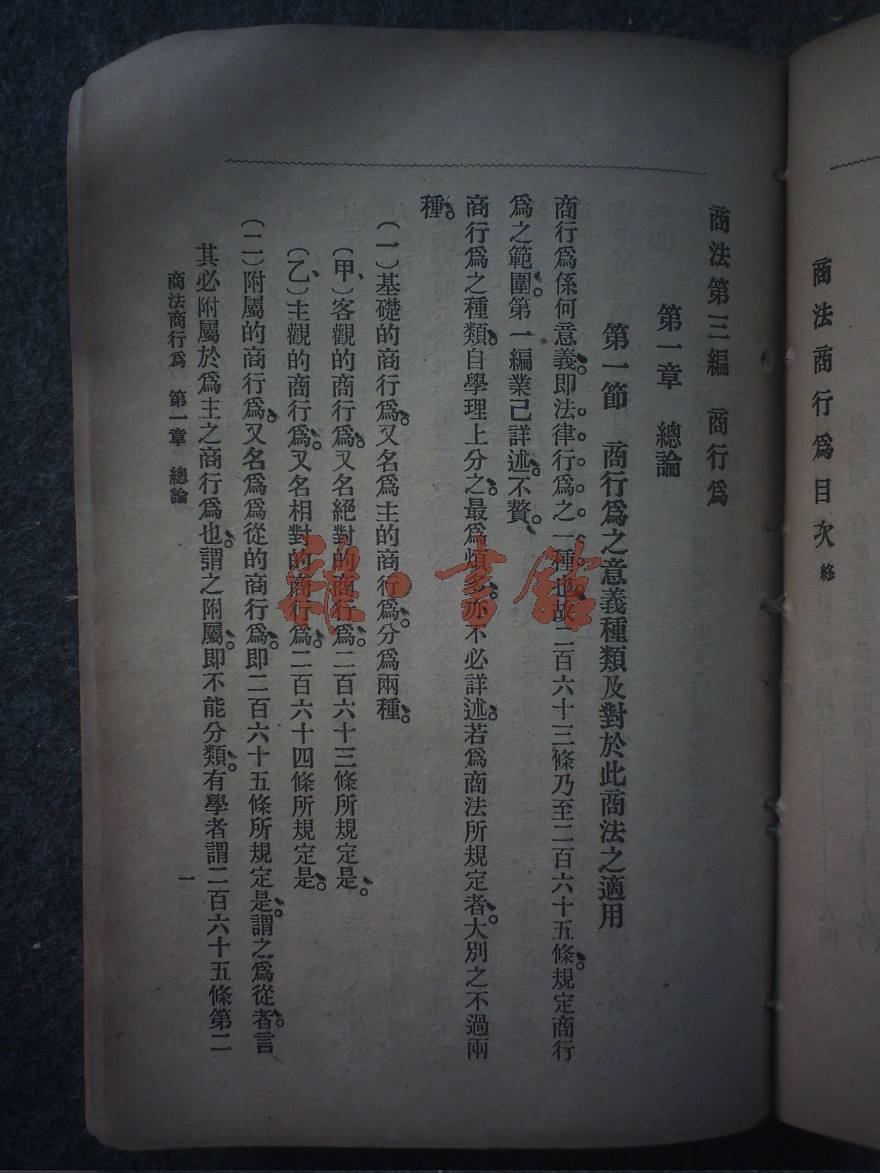 商法商行爲目次 終
商法第三編 商行爲
第一章 總論
第一節 商行爲之意義種類及對於此商法之適用
商行爲係何意義。卽法律行爲之一種也。故二百六十三條乃至二百六十五條。規定商行
爲之範圍。第一編業已詳述。不贅。
商行爲之種類。自學理上分之。最爲煩多。亦不必詳述。若爲商法所規定者。大別之不過兩
種。
(一)基礎的商行爲。又名爲主的商行爲。分爲兩種。
(甲)客觀的商行爲。又名絕對的商行爲。二百六十三條所規定是。
(乙)主觀的商行爲。又名相對的商行爲。二百六十四條所規定是。
(二)附屬的商行爲。又名爲爲從的商行爲。卽二百六十五條所規定是。謂之爲從者。言
其必附屬於爲主之商行爲也。謂之附屬。卽不能分類。有學者謂二百六十五條第二
商法商行爲 第一章 總論
一
雜·書館